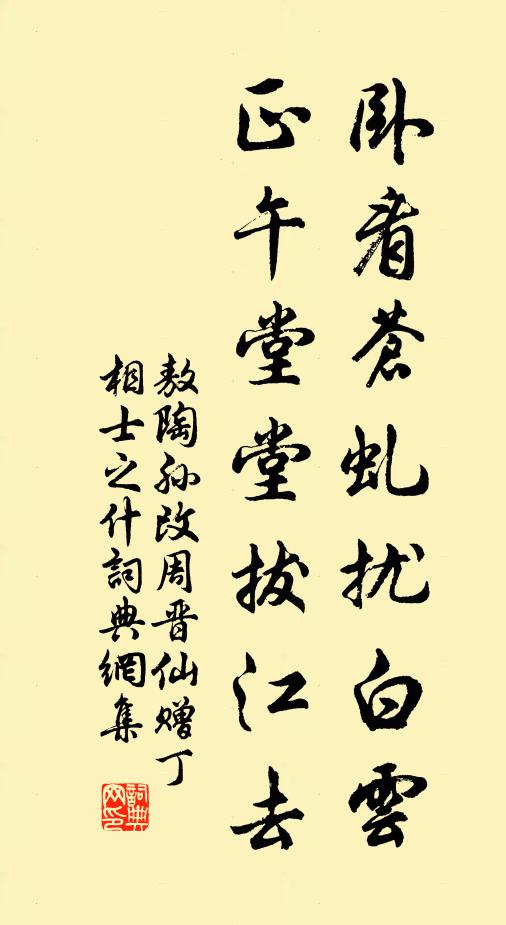 卧看蒼虬扰白雲
正午堂堂拔江去
敖陶孙改周晋仙赠丁
相士之什詞典網集
詞典网印